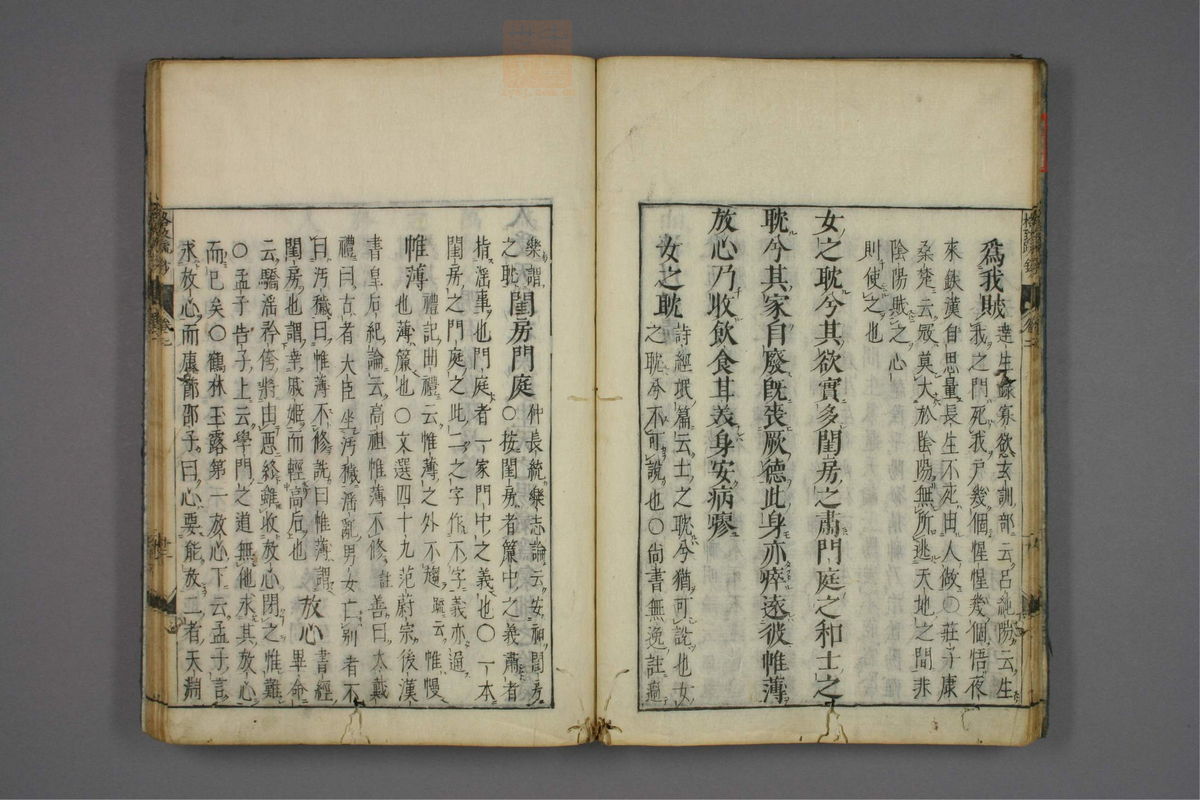 爲我賊 達生錄寡慾玄訓部云呂純陽云生
我之門死我戶幾個惺惺幾個悟夜
來鐵漢自思量長生不死由人做○莊子庚
桑楚云寇莫大於陰陽無所逃天地之間非
陰陽賊之心
則使之也
女之耽兮其欲實多閨房之肅門庭之和士之
耽兮其家自廢旣喪厥德此身亦瘁遠彼帷薄
放心乃收飮食甘美身安病瘳
女之耽 詩經氓篇云士之耽兮猶可說也女
之耽兮不可說也○尙書無逸註過
樂謂
之耽 閨房門庭 仲長統樂志論云安神閨房
○按閨房者簾中之義肅者
指淫事也門庭者一家門中之義也○一本
閨房之門庭之此二之字作不字義亦通
帷薄 禮記曲禮云帷薄之外不趨疏云帷幔
也薄簾也○文選四十九范蔚宗後漢
書皇后紀論云高祖帷薄不修註善曰大戴
禮曰古者大臣坐汚穢淫亂男女亡别者不
曰汚穢曰帷薄不修銑曰帷薄謂
閨房也謂幸戚姬而輕高后也 放心 書經
畢命
云驕淫矜侉將由惡終雖收放心閉之惟難
○孟子告子上云學門之道無他求其放心
而已矣○鶴林玉露第一放心下云孟子言
求放心而康節邵子曰心要能放二者天淵